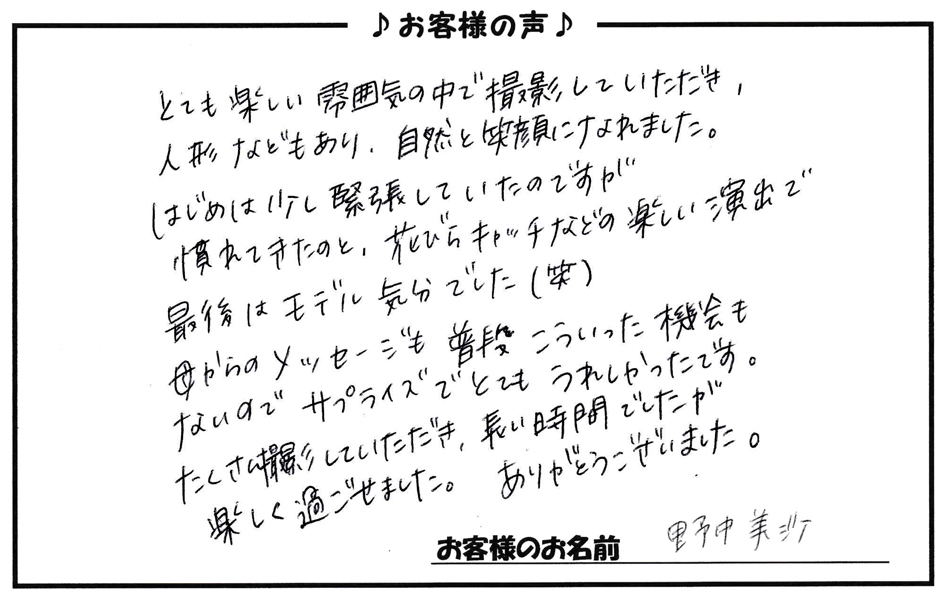 ♪お客様の声♪
とても楽しい雰囲気の中で撮影していただき、
人形などもあり、自然と笑顔になれました。
はじめは少し緊張していたのですが
慣れてきたのと、花びらキャッチなどの楽しい演出で
最後はモデル気分でした(笑)
母からのメッセージも普段こういった機会も
ないのでサプライズでとてもうれしかったです。
たくさん撮影していただき、長い時間でしたが
楽しく過ごせました。ありがとうございました。
お客様のお名前 野中美沙